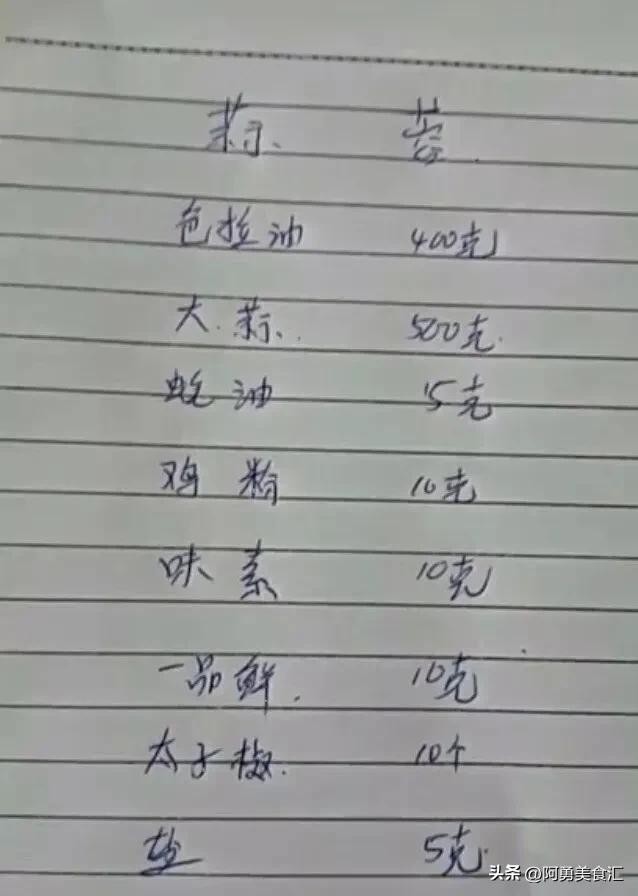 蒜蓉
色拉油 400克
大蒜 500克
蚝油 15克
鸡粉 10克
味素 10克
一品鲜 10克
太子椒 10个
盐 5克
头条 @阿勇美食汇